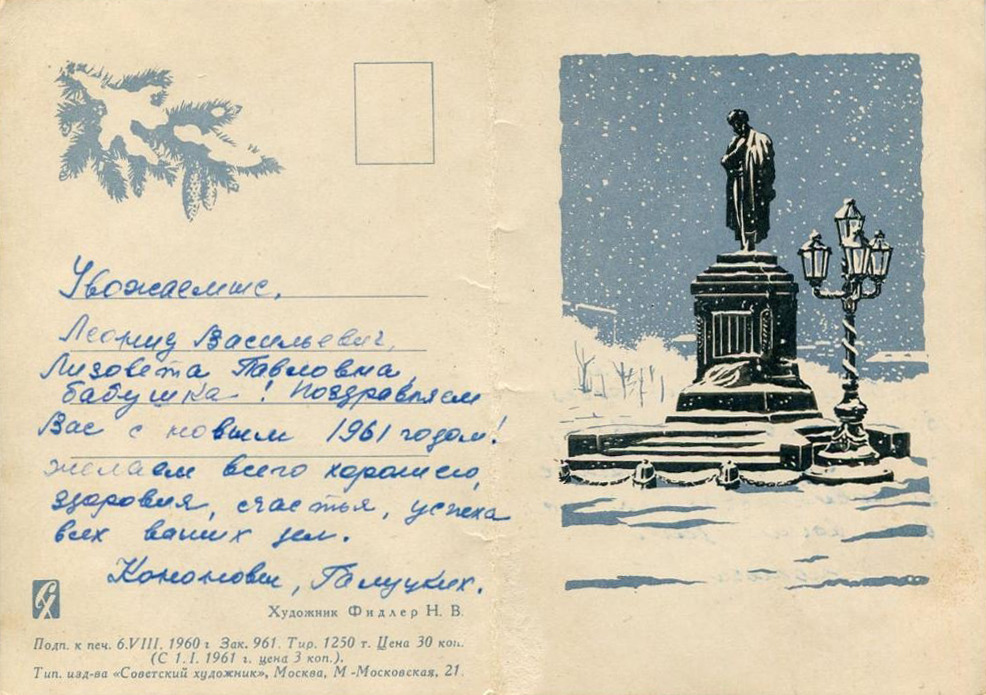 Уважаемые,
Леонид Васильевич,
Лизовета Павловна,
бабушка! Поздравляем
Вас с новым 1961 годом!
желаем всего хорошего,
здоровия, счастья, успеха
всех ваших дел.
Кононовы, Галуцких.
Художник Фидлер Н. В.
Подп. к печ. 6.VIII. 1960 г Зак. 961. Тир. 1250 т. Цена 30 коп.
(С 1.I. 1961 г. цена 3 коп.).
Тип. изд-ва «Советский художник», Москва, М-Московская, 21.